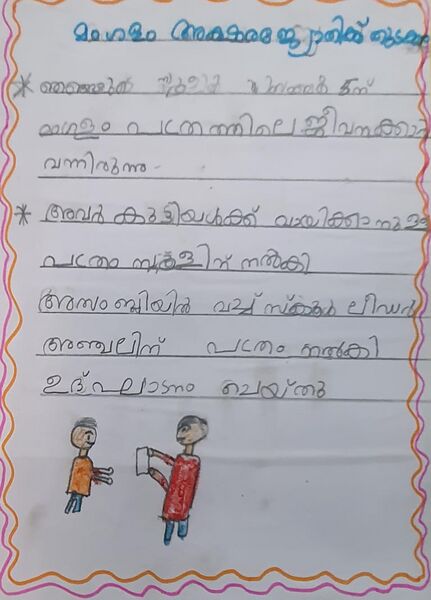 മംഗളം അക്ഷരജ്യോതിക്ക് തുടക്കം
* ഞങ്ങളുടെ സ്കൂളിൽ ജൂലൈ 5ന്
മംഗളം പത്രത്തിലെ ജീവനക്കാർ
വന്നിരുന്നു.
* അവർ കുട്ടിയൾക്ക് വായിക്കാനുള്ള
പത്രം സ്കൂളിന് നൽകി
അസംബ്ലിയിൽ വച്ച് സ്ക്കൂൾ ലീഡർ
അഞ്ചലിന് പത്രം നൽകി
ഉദ്ഘാടനം ചെയ്തു